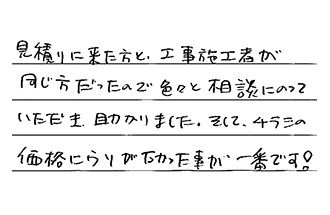 見積りに来た方と、工事施工者が
同じ方だったので色々と相談にのって
いただき、助かりました。そして、チラシの
価格にウソがなかった事が一番です!